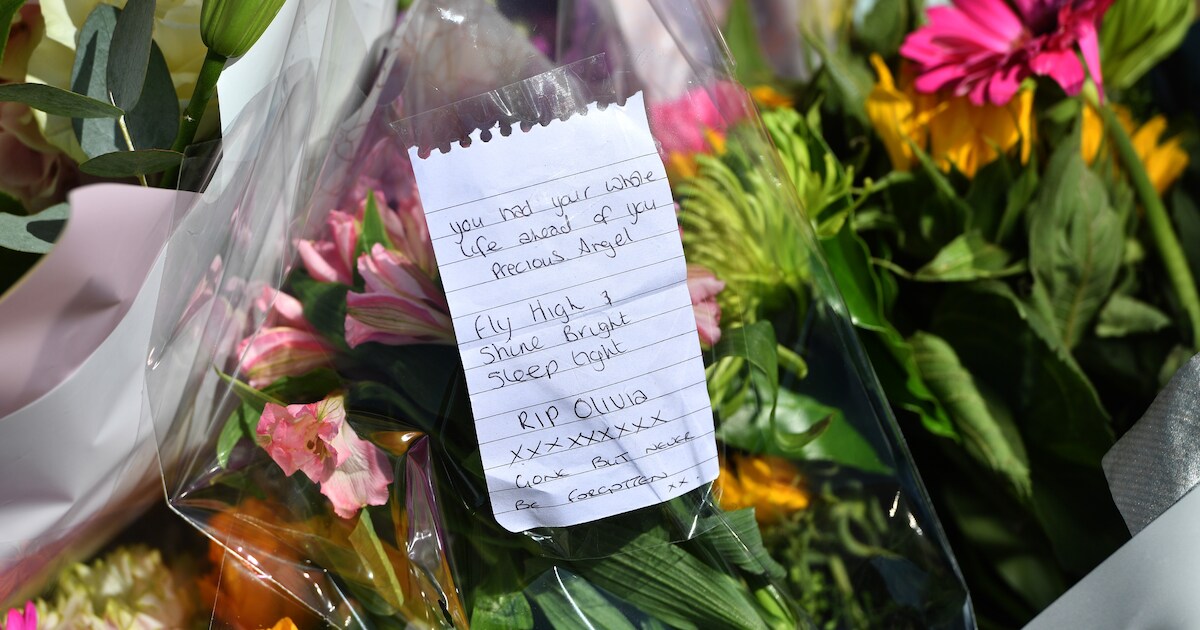 you had your whole
life ahead of you
Precious Angel
Fly High &
Shine Bright
Sleep tight
RIP OLIVIA
xxxxxxxx
GONE BUT NEVER
BE FORGOTTEN xx